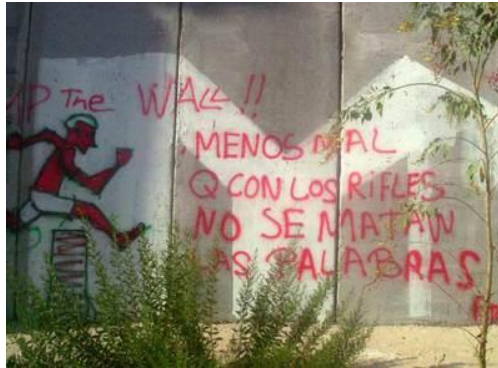 MP The WALL!!
MENOS MAL
Q CON LOS RIFLES
NO SE MATAN
LAS PALABRAS